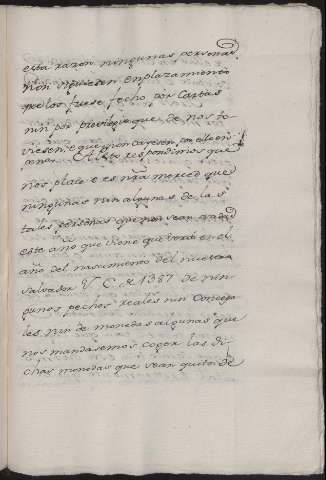 esta razon ningunas personas
non siguiesen enplazamiento
que les fuese fecho por Cartas
nin por previlegio que de nos to
viesen que non cayesen por ello en
pena. A esto respondimos que
nos place e es nrã merced que
ningunas nin algunas de las
tales personas que non sean
este año que viene que será en el
año del nascimiento del nuestro
salvador V. C. de 1387 de nin
gunos pechos reales nin Conceja
les nin de monedas algunas que
nos mandasemos coger las di
chas monedas que sean quitos de